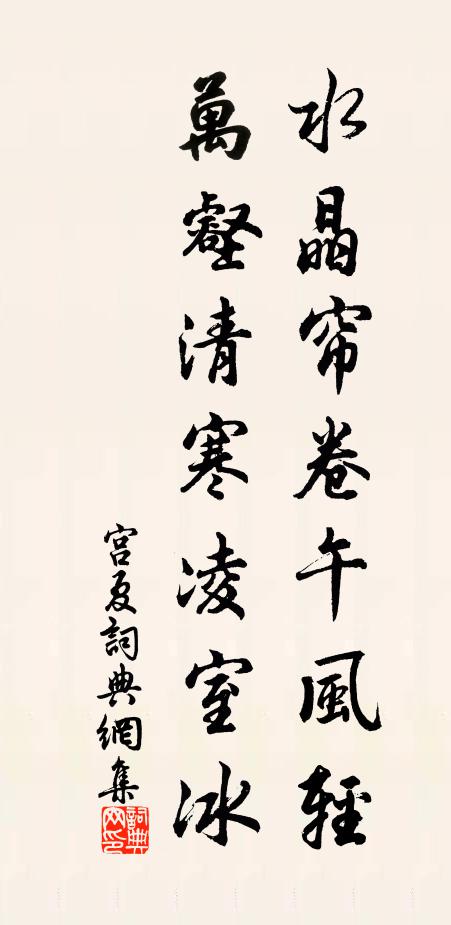 水晶帘卷午風輕
萬壑清寒凌室冰
宫夏詞典網集
詞典
网印